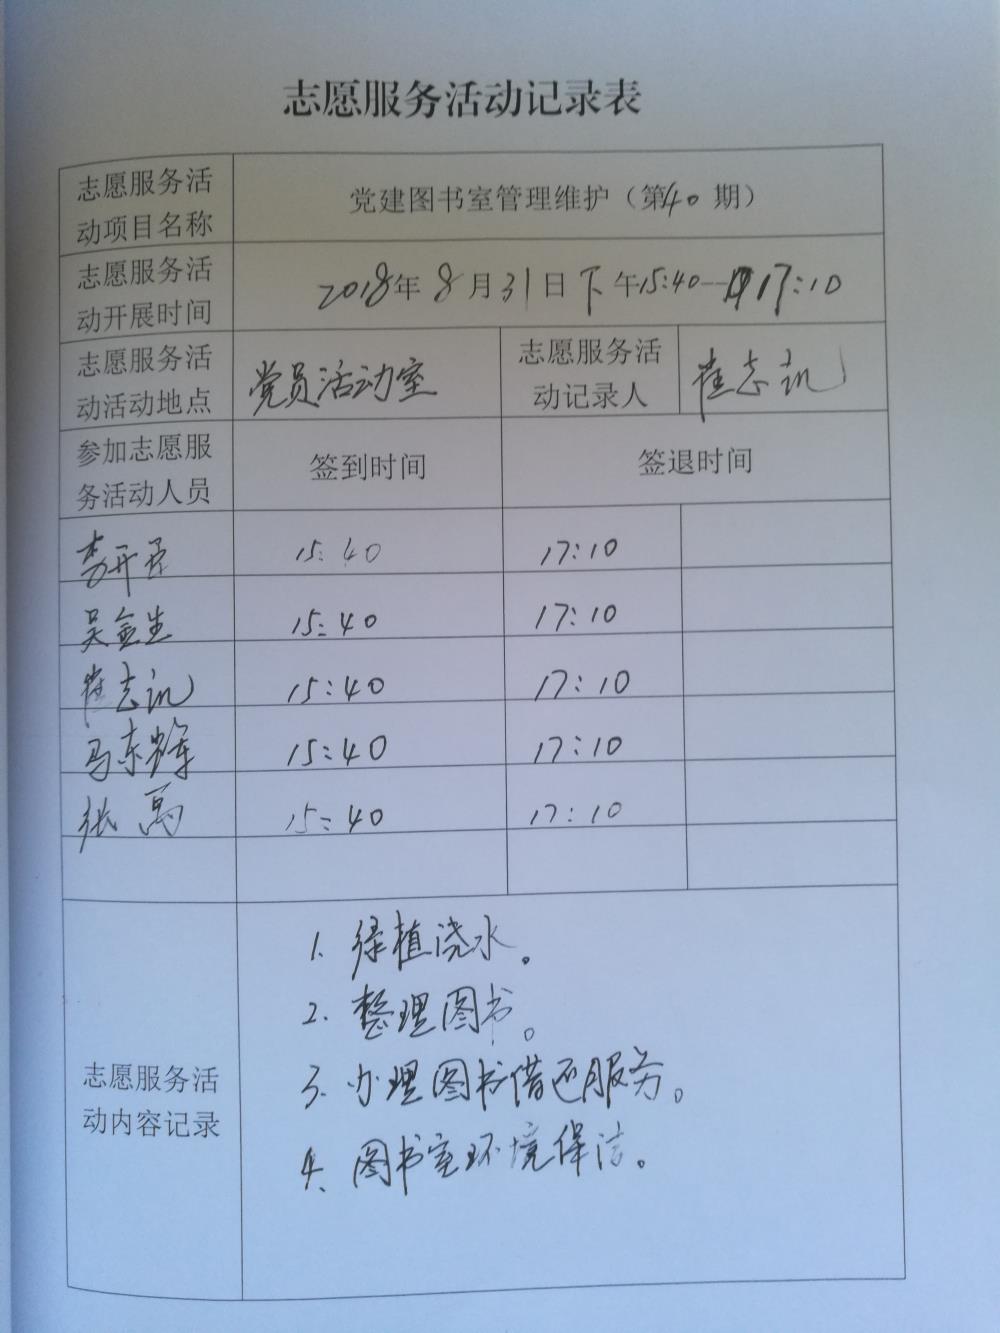 志愿服务活动记录表
志愿服务活
动项目名称
党建图书室管理维护（第40期）
志愿服务活
动开展时间
2018年8月31日下午15:40--17:10
志愿服务活
动活动地点
党员活动室
志愿服务活
动记录人
崔志
参加志愿服
务活动人员
签到时间
签退时间
李开
15:40
17:10
吴金生
15:40
17:10
崔志
15:40
17:10
马东辉
15:40
17:10
张
15:40
17:10
志愿服务活
动内容记录
1. 绿植浇水。
2. 整理图书。
3. 办理图书借还服务。
4. 图书室环境保洁。